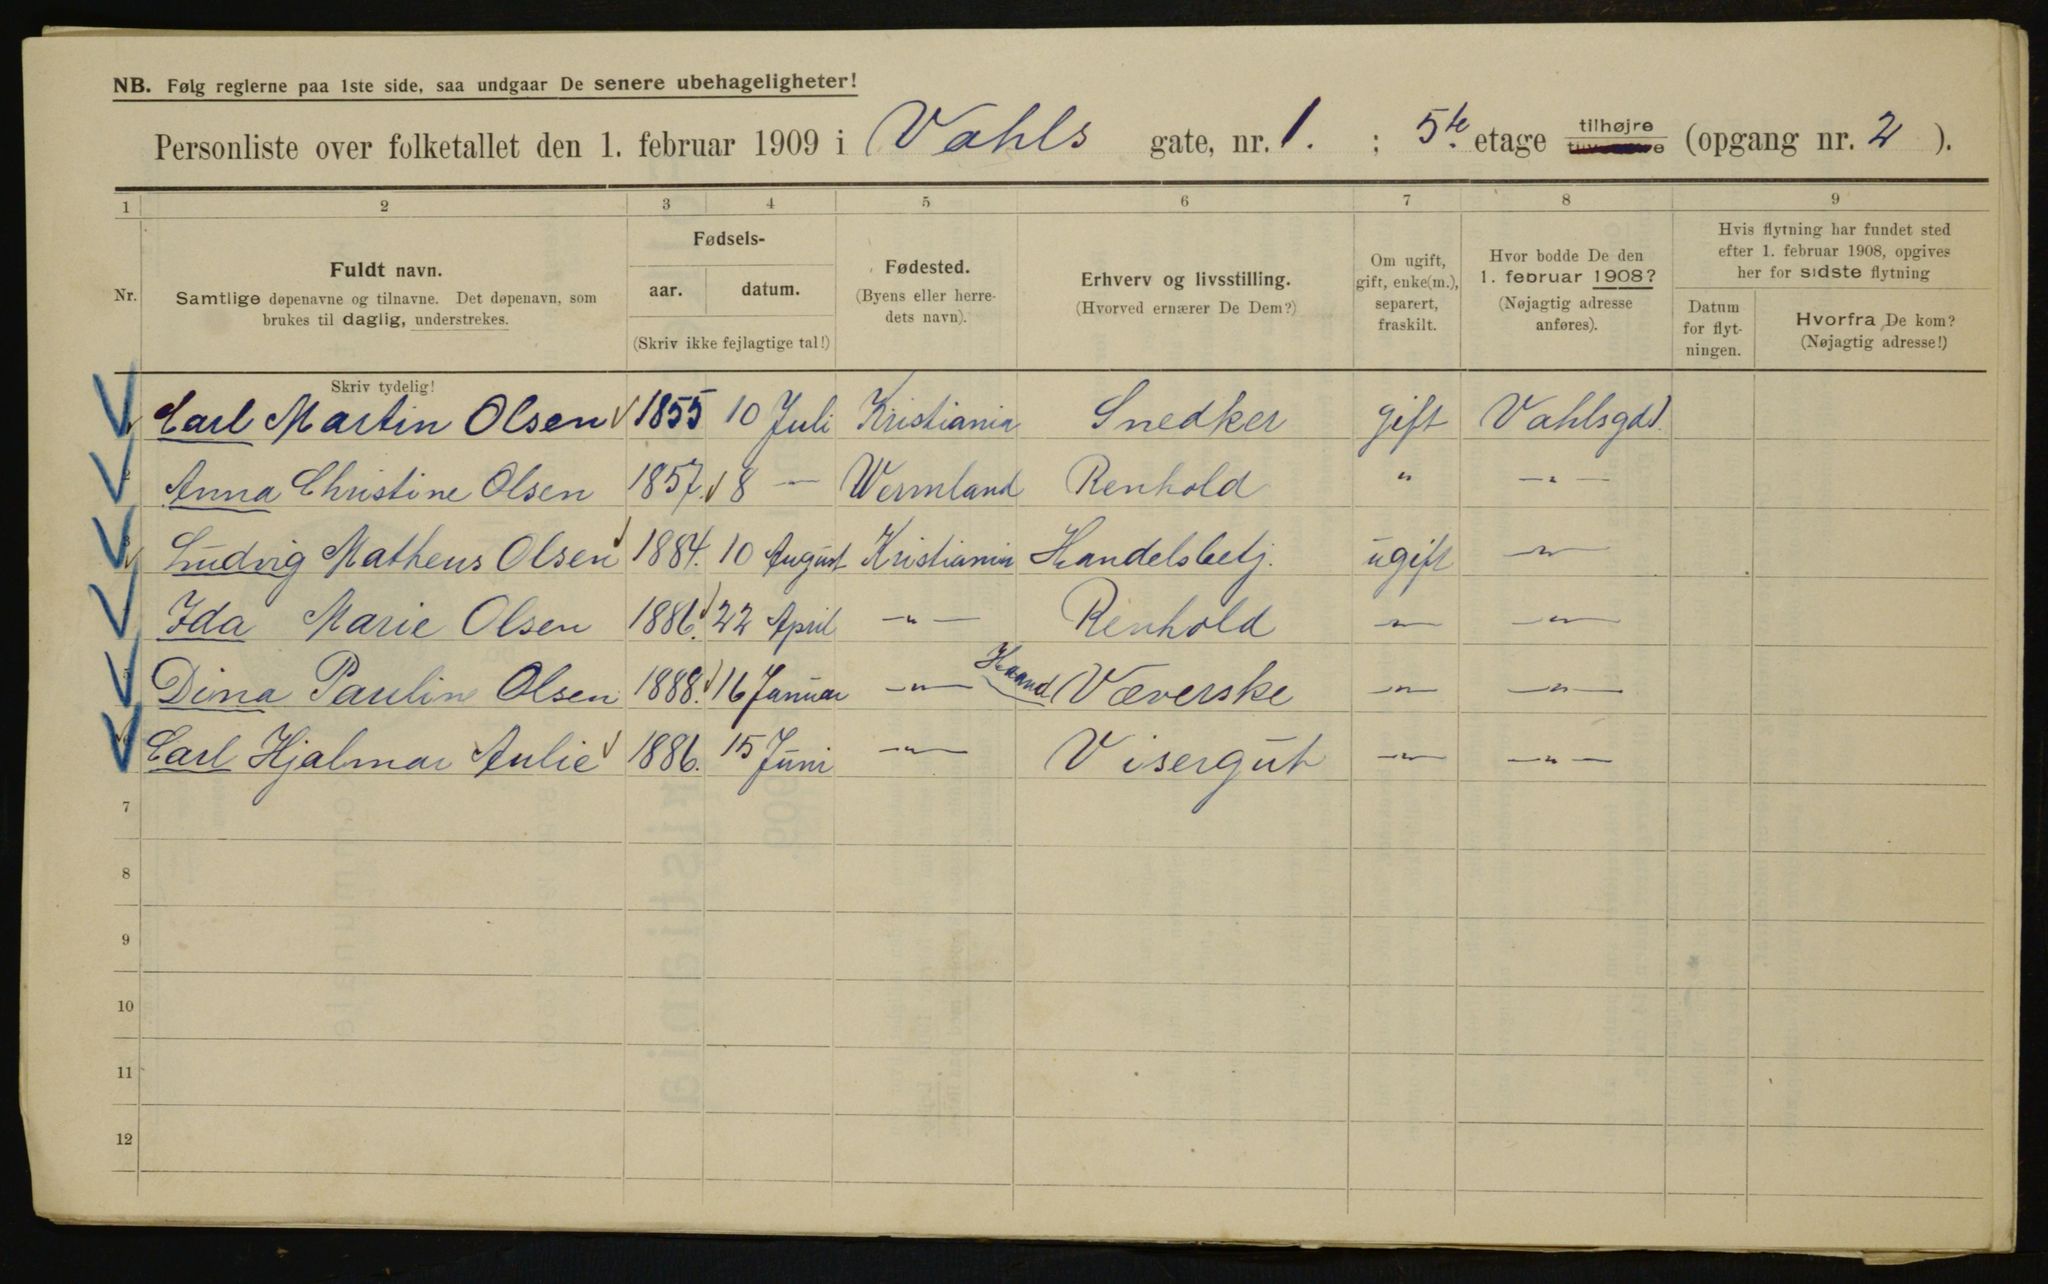 NB. Følg reglerne paa 1ste side, saa undgaar De senere ubehageligheter!
Personliste over folketallet den 1. februar 1909 i Vahls gate, nr. 1. ; 5te etage tilhøjre (opgang nr. 2 ).
1 2 3 4 5 6 7 8 9
Nr.
Fuldt navn.
Samtlige døpenavne og tilnavne. Det døpenavn, som
brukes til daglig, understrekes.
Fødsels-
aar. datum.
(Skriv ikke fejlagtige tal!)
Fødested.
(Byens eller herre-
dets navn).
Erhverv og livsstilling.
(Hvorved ernærer De Dem?)
Om ugift,
gift, enke(m.),
separert,
fraskilt.
Hvor bodde De den
1. februar 1908?
(Nøjagtig adresse
anføres).
Hvis flytning har fundet sted
efter 1. februar 1908, opgives
her for sidste flytning
Datum
for flyt-
ningen.
Hvorfra De kom?
(Nøjagtig adresse!)
Skriv tydelig!
Carl Martin Olsen 1855 10 Juli Kristiania Snedker gift Vahlsgd 1.
Anna Christine Olsen 1857. 8 — Wermland Renhold " — " —
Ludvig Matheus Olsen 1884. 10 August Kristiania Handelsbetj. ugift — " —
Ida Marie Olsen 1886. 22 April — " — Renhold — " — — " —
Dina Pauline Olsen 1888. 16 Januar — " — Haand Væverske — " — — " —
Carl Hjalmar Aulie 1886. 15 Juni — " — Visergut — " — — " —
7
8
9
10
11
12